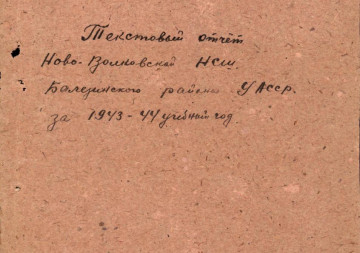 Текстовый отчёт
Ново-Волковской НСШ
Балезинского района УАССР.
за 1943-44 учебный год.